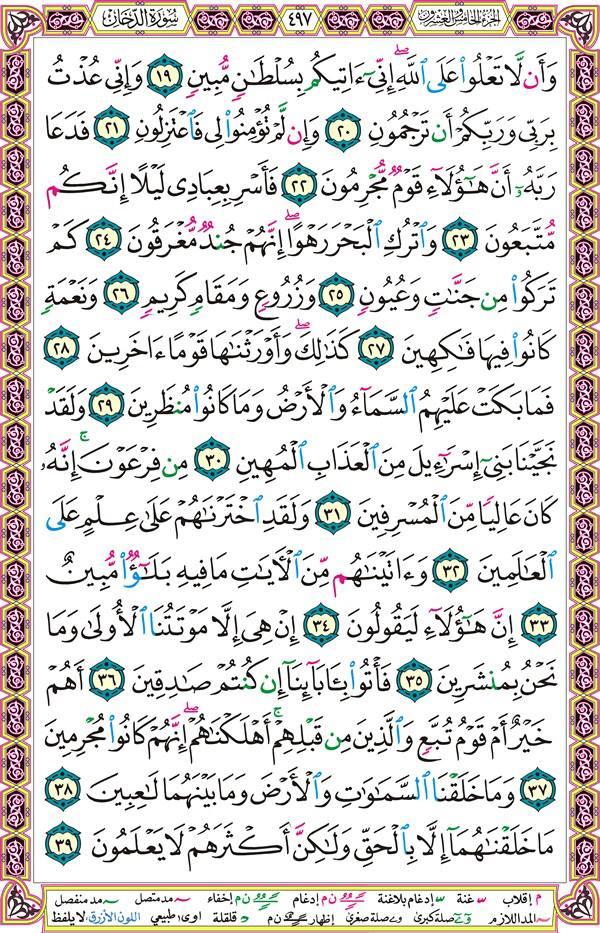 الجزء الخامس والعشرون ٤٩٧ سورة الدخان
وَأَن لَّا تَعْلُوا۟ عَلَى ٱللَّهِ ۖ إِنِّىٓ ءَاتِيكُم بِسُلْطَٰنٍ مُّبِينٍ ١٩ وَإِنِّى عُذْتُ
بِرَبِّى وَرَبِّكُمْ أَن تَرْجُمُونِ ٢٠ وَإِن لَّمْ تُؤْمِنُوا۟ لِى فَٱعْتَزِلُونِ ٢١ فَدَعَا
رَبَّهُۥٓ أَنَّ هَٰٓؤُلَآءِ قَوْمٌ مُّجْرِمُونَ ٢٢ فَأَسْرِ بِعِبَادِى لَيْلًا إِنَّكُم
مُّتَّبَعُونَ ٢٣ وَٱتْرُكِ ٱلْبَحْرَ رَهْوًا ۖ إِنَّهُمْ جُندٌ مُّغْرَقُونَ ٢٤ كَمْ
تَرَكُوا۟ مِن جَنَّٰتٍ وَعُيُونٍ ٢٥ وَزُرُوعٍ وَمَقَامٍ كَرِيمٍ ٢٦ وَنَعْمَةٍ
كَانُوا۟ فِيهَا فَٰكِهِينَ ٢٧ كَذَٰلِكَ ۖ وَأَوْرَثْنَٰهَا قَوْمًا ءَاخَرِينَ ٢٨
فَمَا بَكَتْ عَلَيْهِمُ ٱلسَّمَآءُ وَٱلْأَرْضُ وَمَا كَانُوا۟ مُنظَرِينَ ٢٩ وَلَقَدْ
نَجَّيْنَا بَنِىٓ إِسْرَٰٓءِيلَ مِنَ ٱلْعَذَابِ ٱلْمُهِينِ ٣٠ مِن فِرْعَوْنَ ۚ إِنَّهُۥ
كَانَ عَالِيًا مِّنَ ٱلْمُسْرِفِينَ ٣١ وَلَقَدِ ٱخْتَرْنَٰهُمْ عَلَىٰ عِلْمٍ عَلَى
ٱلْعَٰلَمِينَ ٣٢ وَءَاتَيْنَٰهُم مِّنَ ٱلْءَايَٰتِ مَا فِيهِ بَلَٰٓؤٌا۟ مُّبِينٌ
٣٣ إِنَّ هَٰٓؤُلَآءِ لَيَقُولُونَ ٣٤ إِنْ هِىَ إِلَّا مَوْتَتُنَا ٱلْأُولَىٰ وَمَا
نَحْنُ بِمُنشَرِينَ ٣٥ فَأْتُوا۟ بِـَٔابَآئِنَآ إِن كُنتُمْ صَٰدِقِينَ ٣٦ أَهُمْ
خَيْرٌ أَمْ قَوْمُ تُبَّعٍ وَٱلَّذِينَ مِن قَبْلِهِمْ ۚ أَهْلَكْنَٰهُمْ ۖ إِنَّهُمْ كَانُوا۟ مُجْرِمِينَ
٣٧ وَمَا خَلَقْنَا ٱلسَّمَٰوَٰتِ وَٱلْأَرْضَ وَمَا بَيْنَهُمَا لَٰعِبِينَ ٣٨
مَا خَلَقْنَٰهُمَآ إِلَّا بِٱلْحَقِّ وَلَٰكِنَّ أَكْثَرَهُمْ لَا يَعْلَمُونَ ٣٩
م إقلاب غنة إدغام بلاغنة ن م إدغام ن م إخفاء مد متصل مد منفصل
المد اللازم صلة كبرى صلة صغرى إظهار ن م قلقلة اوى طبيعي اللون الأزرق: لا يلفظ